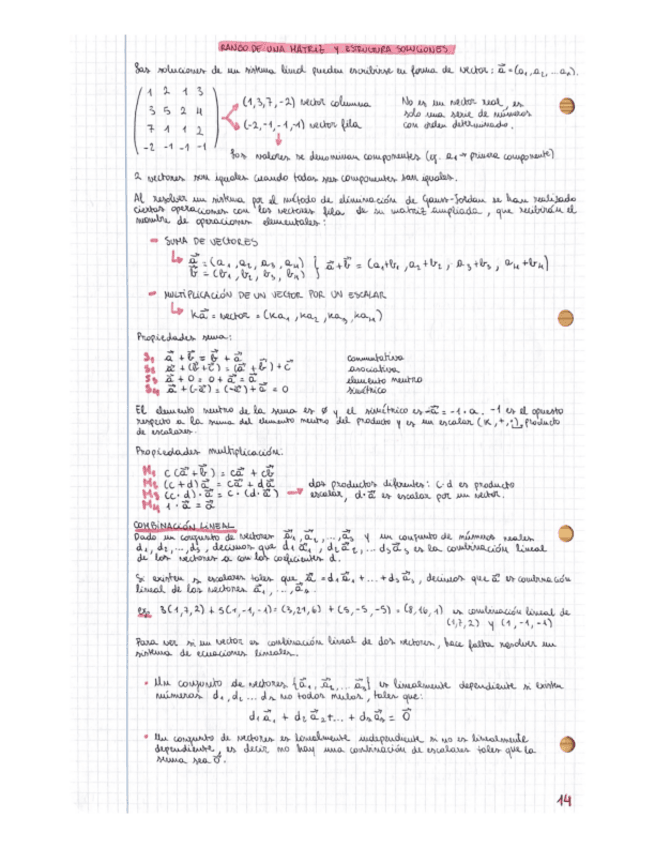 RANGO DE UNA MATRIZ Y ESTRUCTURA SOLUCIONES
Las soluciones de un sistema lineal pueden escribirse en forma de vector: a⃗ = (a₁, a₂, ... aₙ).
1 2 1 3
3 5 2 4
7 1 1 2
-2 -1 -1 -1
(1,3,7,-2) vector columna
(-2,-1,-1,-1) vector fila
No es un vector real, es
solo una serie de números
con orden determinado.
Los valores se denominan componentes (ej. a₁ → primera componente)
2 vectores son iguales cuando todas sus componentes son iguales.
Al resolver un sistema por el método de eliminación de Gauss-Jordan se han realizado
ciertas operaciones con los vectores fila de su matriz ampliada, que recibirán el
nombre de operaciones elementales:
- SUMA DE VECTORES
a⃗ = (a₁, a₂, a₃, a₄)
b⃗ = (b₁, b₂, b₃, b₄) } a⃗ + b⃗ = (a₁+b₁, a₂+b₂, a₃+b₃, a₄+b₄)
- MULTIPLICACIÓN DE UN VECTOR POR UN ESCALAR
Ka⃗ = vector = (Ka₁, Ka₂, Ka₃, Ka₄)
Propiedades suma:
S₁ a⃗ + b⃗ = b⃗ + a⃗ conmutativa
S₂ a⃗ + (b⃗ + c⃗) = (a⃗ + b⃗) + c⃗ asociativa
S₃ a⃗ + 0 = 0 + a⃗ = a⃗ elemento neutro
S₄ a⃗ + (-a⃗) = (-a⃗) + a⃗ = 0 simétrico
El elemento neutro de la suma es 0 y el simétrico es -a⃗ = -1 · a. -1 es el opuesto
respecto a la suma del elemento neutro del producto y es un escalar (K, +, ·), producto
de escalares.
Propiedades multiplicación:
M₁ c(a⃗ + b⃗) = ca⃗ + cb⃗
M₂ (c + d)a⃗ = ca⃗ + da⃗
M₃ (c · d) · a⃗ = c · (d · a⃗) → dos productos diferentes: c · d es producto
escalar, d · a⃗ es escalar por un vector.
M₄ 1 · a⃗ = a⃗
COMBINACIÓN LINEAL
Dado un conjunto de vectores a⃗₁, a⃗₂, ..., a⃗ₛ y un conjunto de números reales
d₁, d₂, ..., dₛ, decimos que d₁a⃗₁, d₂a⃗₂, ... dₛa⃗ₛ es la combinación lineal
de los vectores a con los coeficientes d.
Si existen s escalares tales que a⃗ = d₁a⃗₁ + ... + dₛa⃗ₛ, decimos que a⃗ es combinación
lineal de los vectores a⃗₁, ..., a⃗ₛ.
ej. 3(1,7,2) + 5(1,-1,-1) = (3,21,6) + (5,-5,-5) = (8,16,1) es combinación lineal de
(1,7,2) y (1,-1,-1)
Para ver si un vector es combinación lineal de dos vectores, hace falta resolver un
sistema de ecuaciones lineales.
• Un conjunto de vectores {a⃗₁, a⃗₂, ... a⃗ₛ} es linealmente dependiente si existen
números d₁, d₂ ... dₛ no todos nulos, tales que:
d₁a⃗₁ + d₂a⃗₂ + ... + dₛa⃗ₛ = 0⃗
• Un conjunto de vectores es linealmente independiente si no es linealmente
dependiente, es decir no hay una combinación de escalares tales que la
suma sea 0⃗.
14